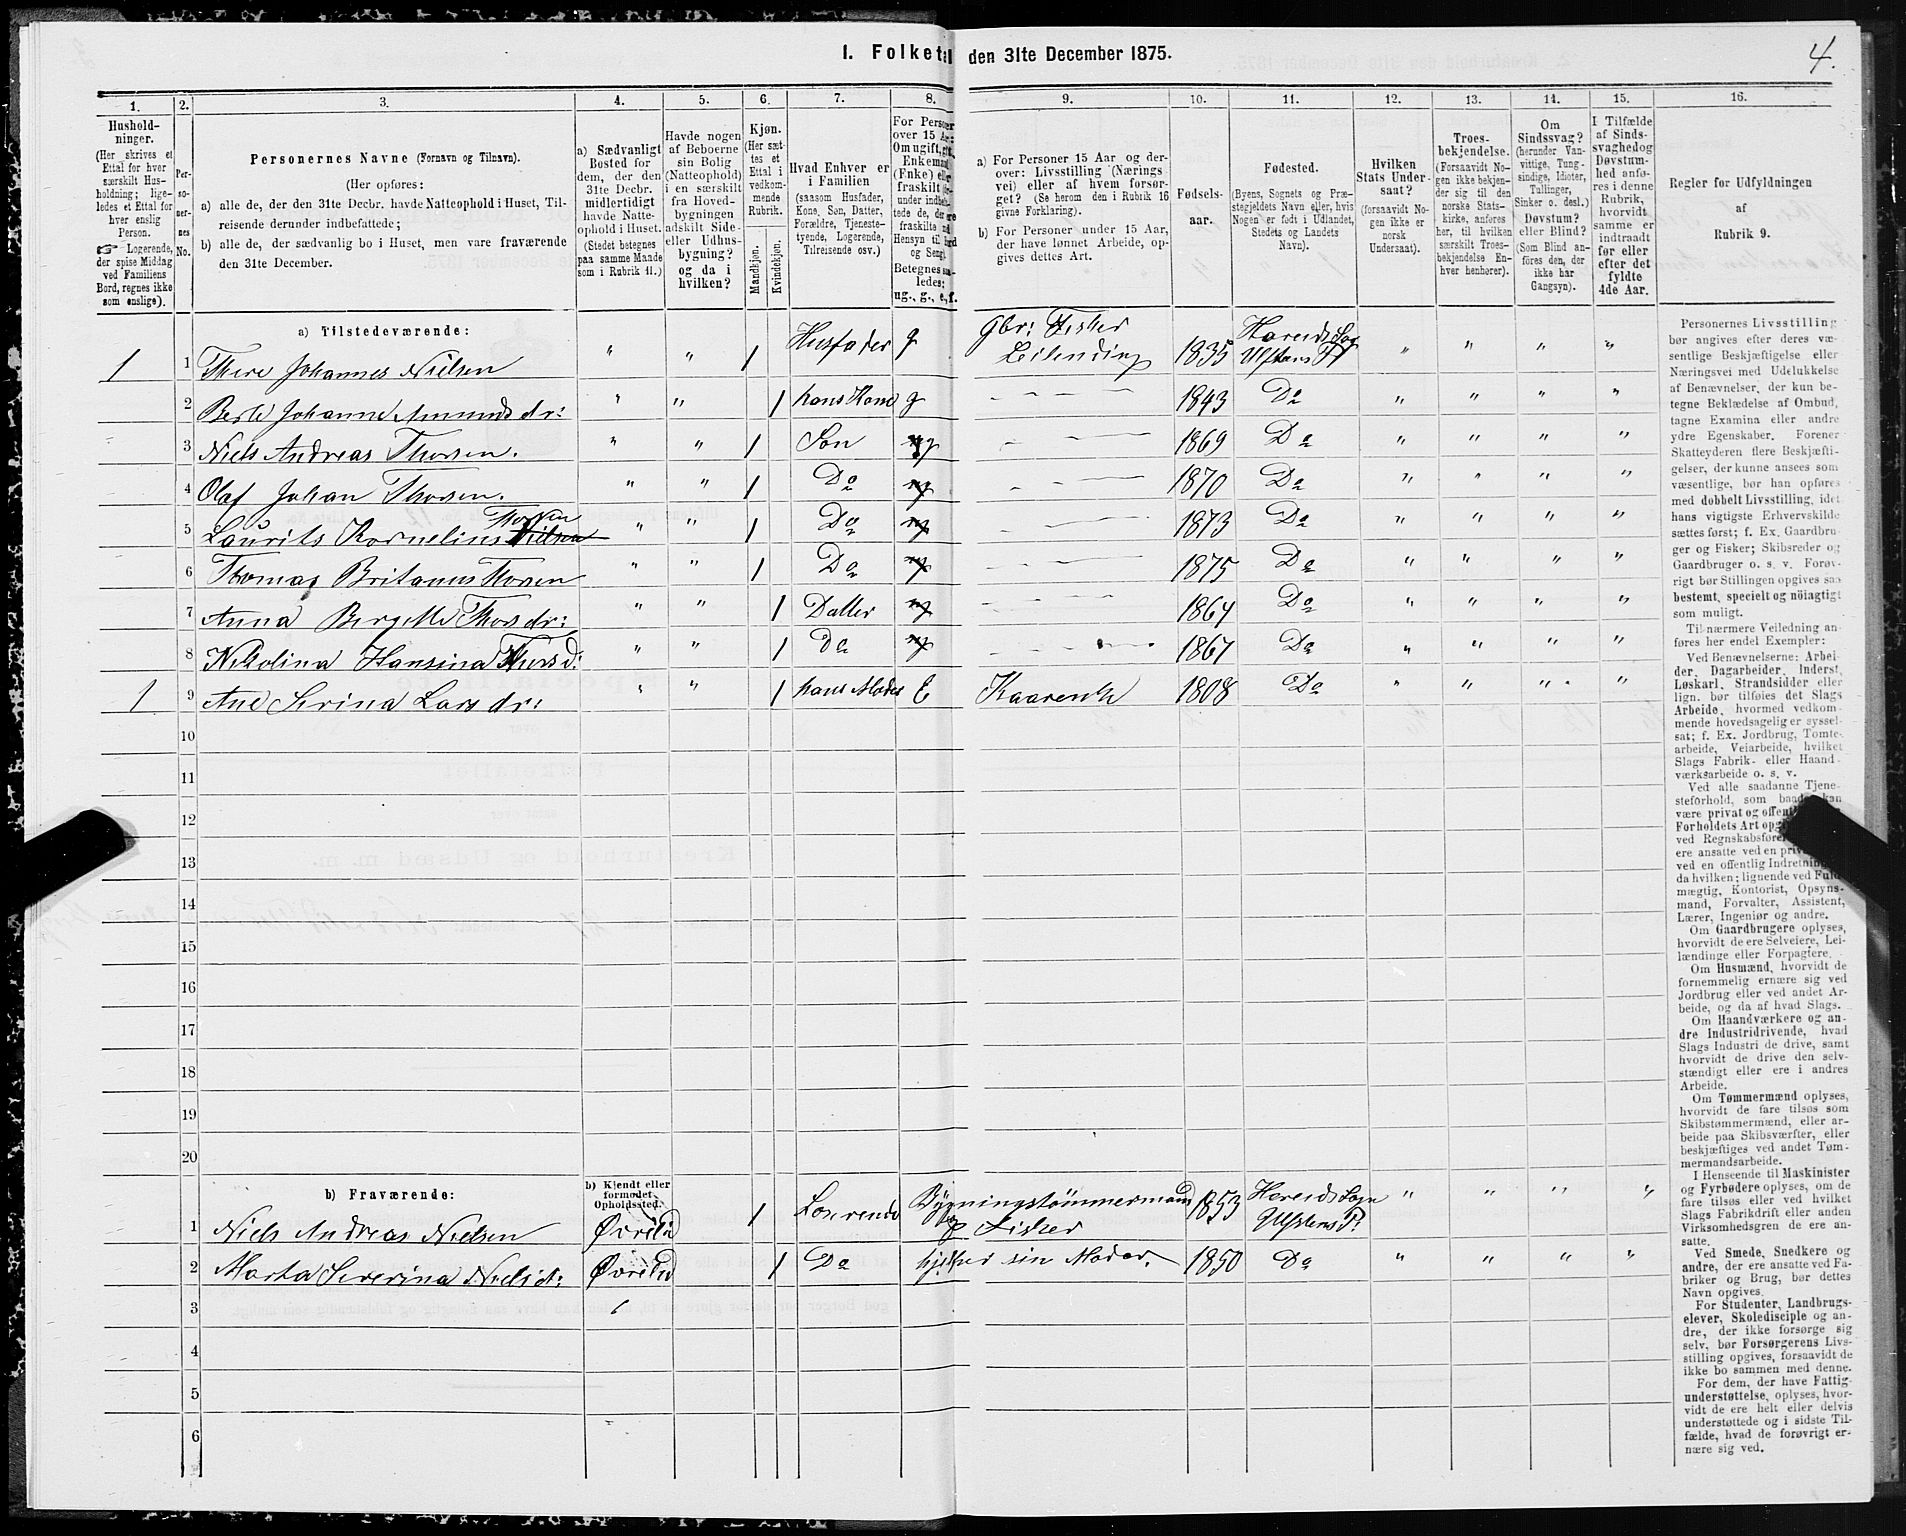 I. Folketal den 31te December 1875.
4.
1. 2. 3. 4. 5. 6. 7. 8. 9. 10. 11. 12. 13. 14. 15. 16.
Hushold-
ninger.
(Her skrives et
Ettal for hver
særskilt Hus-
holdning; lige-
ledes et Ettal for
hver enslig
Person.
☞ Logerende,
der spise Middag
ved Familiens
Bord, regnes ikke
som enslige).
Per-
so-
ner-
nes
No.
Personernes Navne (Fornavn og Tilnavn).
(Her opføres:
a) alle de, der den 31te Decbr. havde Natteophold i Huset, Til-
reisende derunder indbefattede;
b) alle de, der sædvanlig bo i Huset, men vare fraværende
den 31te December.
a) Sædvanligt
Bosted for
dem, der den
31te Decbr.
midlertidigt
havde Natte-
ophold i Huset.
(Stedet betegnes
paa samme Maade
som i Rubrik 11.)
Havde nogen
af Beboerne
sin Bolig
(Natteophold)
i en særskilt
fra Hoved-
bygningen
adskilt Side-
eller Udhus-
bygning?
og da i
hvilken?
Kjøn.
(Her sæt-
tes et
Ettal i
vedkom-
mende
Rubrik.
Mandkjøn.
Kvindekjøn.
Hvad Enhver er
i Familien
(saasom Husfader,
Kone, Søn, Datter,
Forældre, Tjeneste-
tyende, Logerende,
Tilreisende osv.)
For Personer
over 15 Aar:
Om ugift, gift,
Enkemand
(Enke) eller
fraskilt
Betegnes saa-
ledes:
ug., g., e., f.
a) For Personer 15 Aar og der-
over: Livsstilling (Nærings
vei) eller af hvem forsør-
get? (Se herom den i Rubrik 16
givne Forklaring).
b) For Personer under 15 Aar,
der have lønnet Arbeide, op-
gives dettes Art.
Fødsels-
aar.
Fødested.
(Byens, Sognets og Præ-
stegjeldets Navn eller, hvis
Nogen er født i Udlandet,
Stedets og Landets
Navn).
Hvilken
Stats Under-
saat?
(forsaavidt No-
gen ikke er
norsk
Undersaat).
Troes-
bekjendelse.
(Forsaavidt No-
gen ikke bekjen-
der sig til den
norske Stats-
kirke, anføres
her, til hvilken
særskilt Troes-
bekjendelse En-
hver henhører).
Om
Sindssvag?
(herunder Van-
vittige, Tung-
sindige, Idioter,
Tullinger,
Sinker o. desl.)
Døvstum?
eller Blind?
(Som Blind an-
føres den, der
ikke har
Gangsyn).
I Tilfælde
af Sinds-
svaghed og
Døvstum-
hed anfø-
res i denne
Rubrik,
hvorvidt
samme er
indtraadt
før eller
efter det
fyldte
4de Aar.
Regler for Udfyldningen
af
Rubrik 9.
a) Tilstedeværende:
1 1 There Johannes Nielsen " " 1 Husfader g Gbr: Fisker Leilending 1835 Hareids Sogn Ulstens Pr " " " "
2 Berte Johanne Amundsdr: " " 1 hans Kone g 1843 Do " " " "
3 Niels Andreas Thorsen. " " 1 Søn ug 1869 Do " " " "
4 Olaf Johan Thorsen. " " 1 Do ug 1870 Do " " " "
5 Laurits Kornelius Nielsen Thorsen " " 1 Do ug 1873 Do " " " "
6 Thomas Britanus Thorsen " " 1 Do ug 1875 Do " " " "
7 Anna Bergette Thorsdr: " " 1 Datter ug 1864 Do " " " "
8 Nikolina Hansina Thorsd: " " 1 Do ug 1867 Do " " " "
1 9 Ane Serina Larsdr: " " 1 hans Moder E Kaarenk 1808 Do " " " "
10
11
12
13
14
15
16
17
18
19
20
b) Fraværende:
b) Kjendt eller
formodet
Opholdssted.
1 Niels Andreas Nielsen Øvrelid 1 Loserende Bygningstømmermand og Fisker 1853 Hareids Sogn Ulstens Pr " " " "
2 Marta Severina Nielsd: Øvrelid 1 Do hjelper sin Moder. 1850 Do " " " "
3
4
5
6
Personernes Livsstilling
bør angives efter deres væ-
sentlige Beskjæftigelse eller
Næringsvei med Udelukkelse
af Benævnelser, der kun be-
tegne Beklædelse af Ombud,
tagne Examina eller andre
ydre Egenskaber. Forener
Skatteyderen flere Beskjæfti-
gelser, der kunne ansees som
væsentlige, bør han opføres
med dobbelt Livsstilling, idet
hans vigtigste Erhvervskilde
sættes først; f. Ex. Gaardbru-
ger og Fisker; Skibsreder og
Gaardbruger o. s. v. Forøv-
rigt bør Stillingen opgives saa
bestemt, specielt og nöiagtigt
som muligt.
Til nærmere Veiledning an-
føres her endel Exempler:
Ved Benævnelserne: Arbei-
der, Dagarbeider, Inderst,
Løskarl, Strandsidder eller
lign. bør tilføies det Slags
Arbeide, hvormed vedkom-
mende hovedsagelig er syssel-
sat; f. Ex. Jordbrug, Tomte-
arbeide, Veiarbeide, hvilket
Slags Fabrik- eller Haand-
værksarbeide o. s. v.
Ved alle saadanne Tjene-
steforhold, som baade kan
være privat og offentligt,
Forholdets Art opgives,
ved Regnskabsførere,
ere ansatte ved en privat
ved en offentlig Indretning,
da hvilken; lignende ved Fuld-
mægtig, Kontorist, Opsyns-
mand, Forvalter, Assistent,
Lærer, Ingeniør og andre.
Om Gaardbrugere oplyses,
hvorvidt de ere Selveiere, Lei-
lændinge eller Forpagtere.
Om Husmænd, hvorvidt de
fornemmelig ernære sig ved
Jordbrug eller ved andet Ar-
beide, og da af hvad Slags.
Om Haandværkere og an-
dre Industridrivende, hvad
Slags Industri de drive, samt
hvorvidt de drive den selv-
stændigt eller ere i andres
Arbeide.
Om Tømmermænd oplyses,
hvorvidt de fare tilsøs som
Skibstømmermænd, eller ar-
beide paa Skibsværfter, eller
beskjæftiges ved andet Tøm-
mermandsarbeide.
I Henseende til Maskinister
og Fyrbødere oplyses, om de
fare tilsøs eller ved hvilket
Slags Fabrikdrift eller anden
Virksomhedsgren de ere an-
satte.
Ved Smede, Snedkere og
andre, der ere ansatte ved Fa-
briker og Brug, bør dettes
Navn opgives.
For Studenter, Landbrugs-
elever, Skoledisciple og an-
dre, der ikke forsørge sig
selv, bør Forsørgerens Livs-
stilling opgives, forsaavidt de
ikke bo sammen med denne.
For dem, der have Fattig-
understøttelse, oplyses, hvor-
vidt de ere helt eller delvis
understøttede og i sidste Til-
fælde, hvad de forøvrigt er-
nære sig ved.